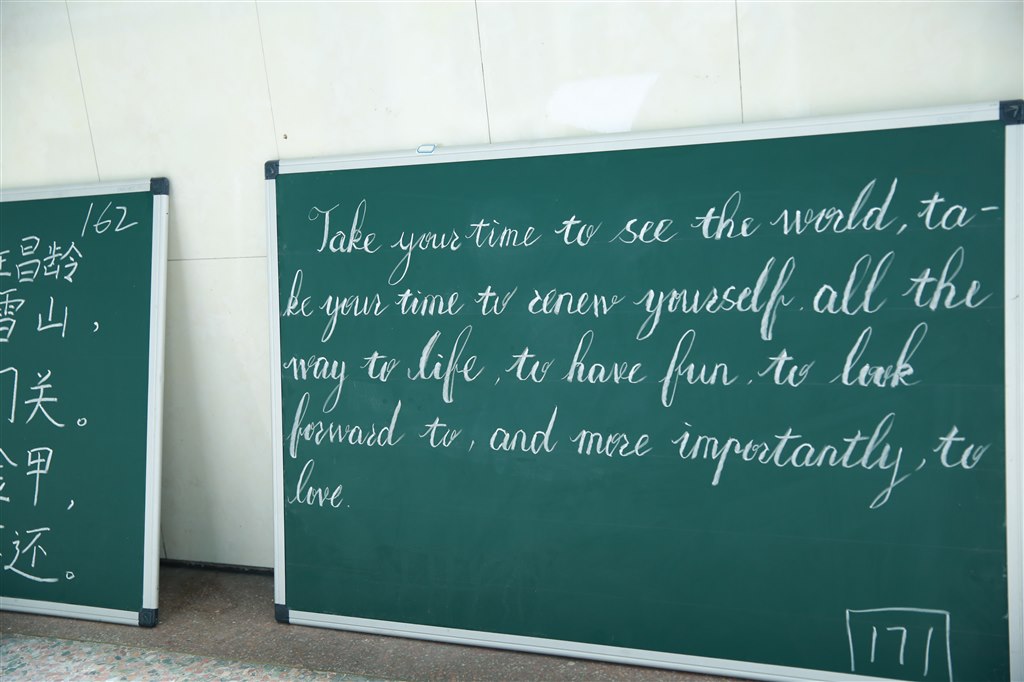 162
昌龄
雪山，
关。
金甲，
还。
Take your time to see the world, ta-
ke your time to renew yourself. all the
way to life, to have fun, to look
forward to, and more importantly, to
love.
171